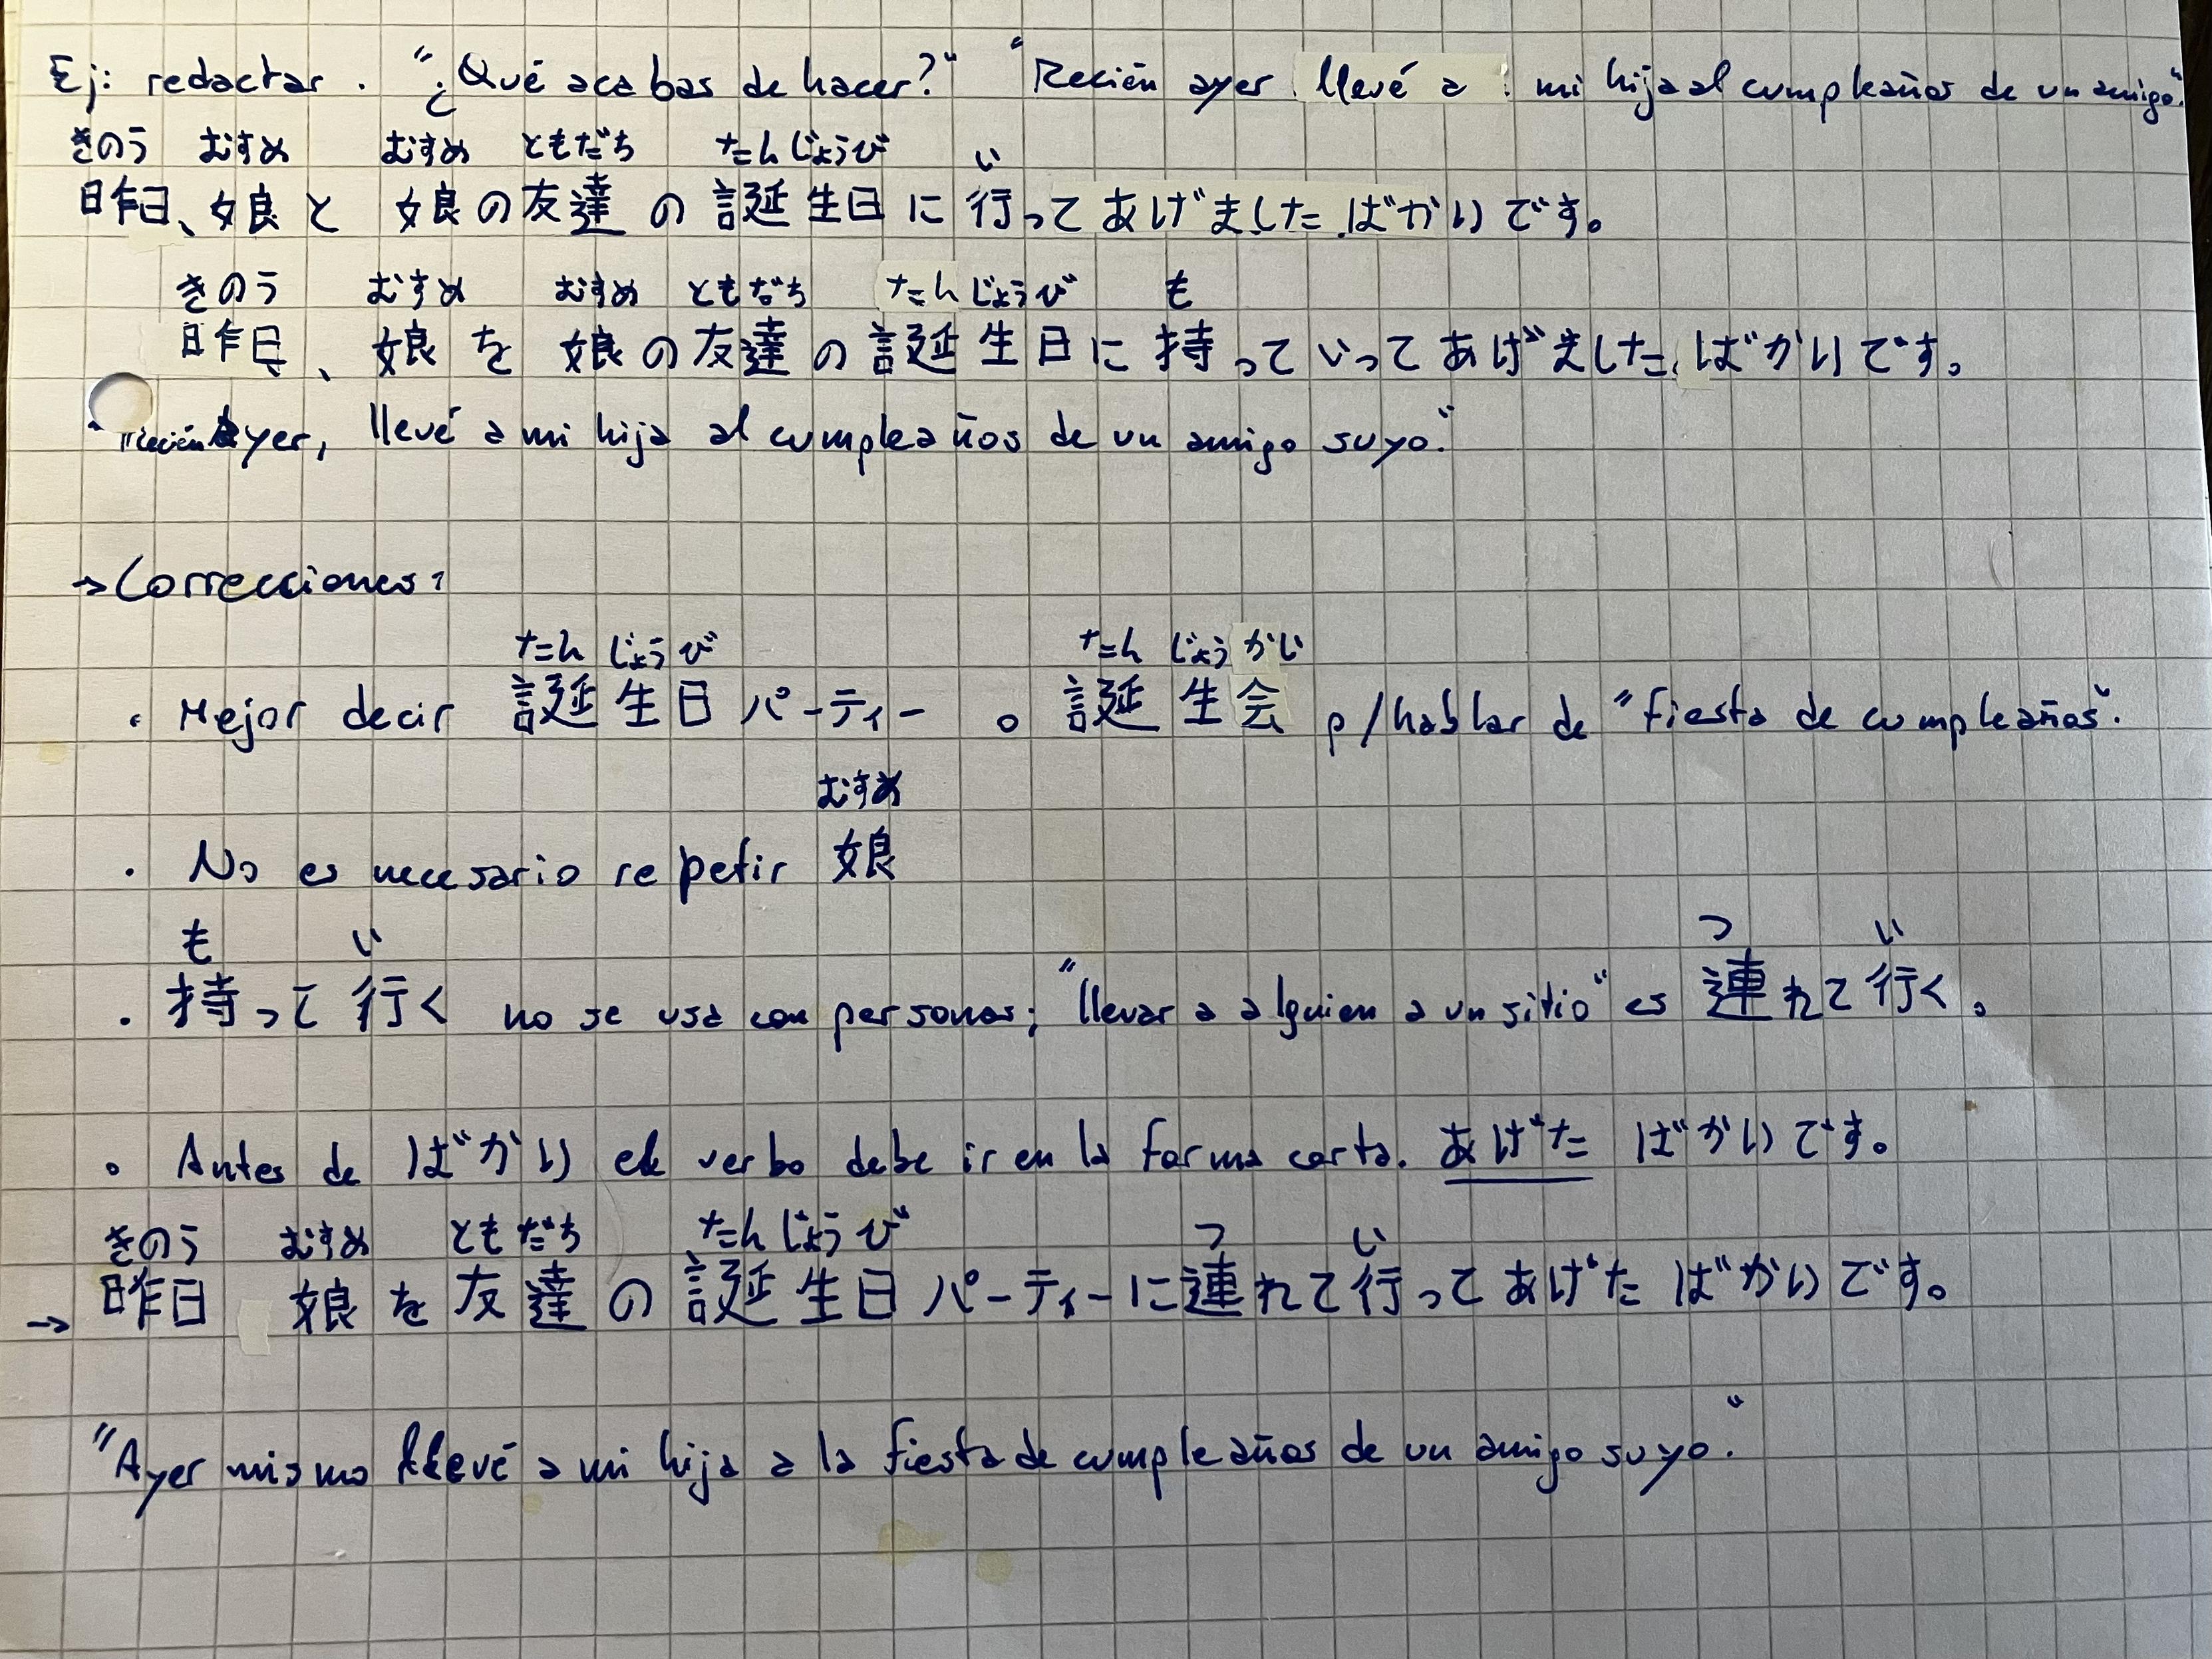 Ej: redactar. "¿Qué acabas de hacer?" "Recién ayer llevé a mi hija al cumpleaños de un amigo".
きのう むすめ むすめ ともだち たんじょうび い
昨日、娘と 娘の友達の誕生日に行ってあげましたばかりです。
きのう むすめ むすめ ともだち たんじょうび も
昨日、娘を娘の友達の誕生日に持っていってあげましたばかりです。
"Recién Ayer, llevé a mi hija al cumpleaños de un amigo suyo."
→ Correcciones:
たんじょうび たんじょうかい
. Mejor decir 誕生日パーティー o 誕生会 p/hablar de "fiesta de cumpleaños".
むすめ
. No es necesario repetir 娘
も い つ い
. 持って行く no se usa con personas; "llevar a alguien a un sitio" es 連れて行く。
. Antes de ばかり el verbo debe ir en la forma corta. あげた ばかりです。
きのう むすめ ともだち たんじょうび つ い
→ 昨日 娘を友達の誕生日パーティーに連れて行ってあげたばかりです。
"Ayer mismo llevé a mi hija a la fiesta de cumpleaños de un amigo suyo."